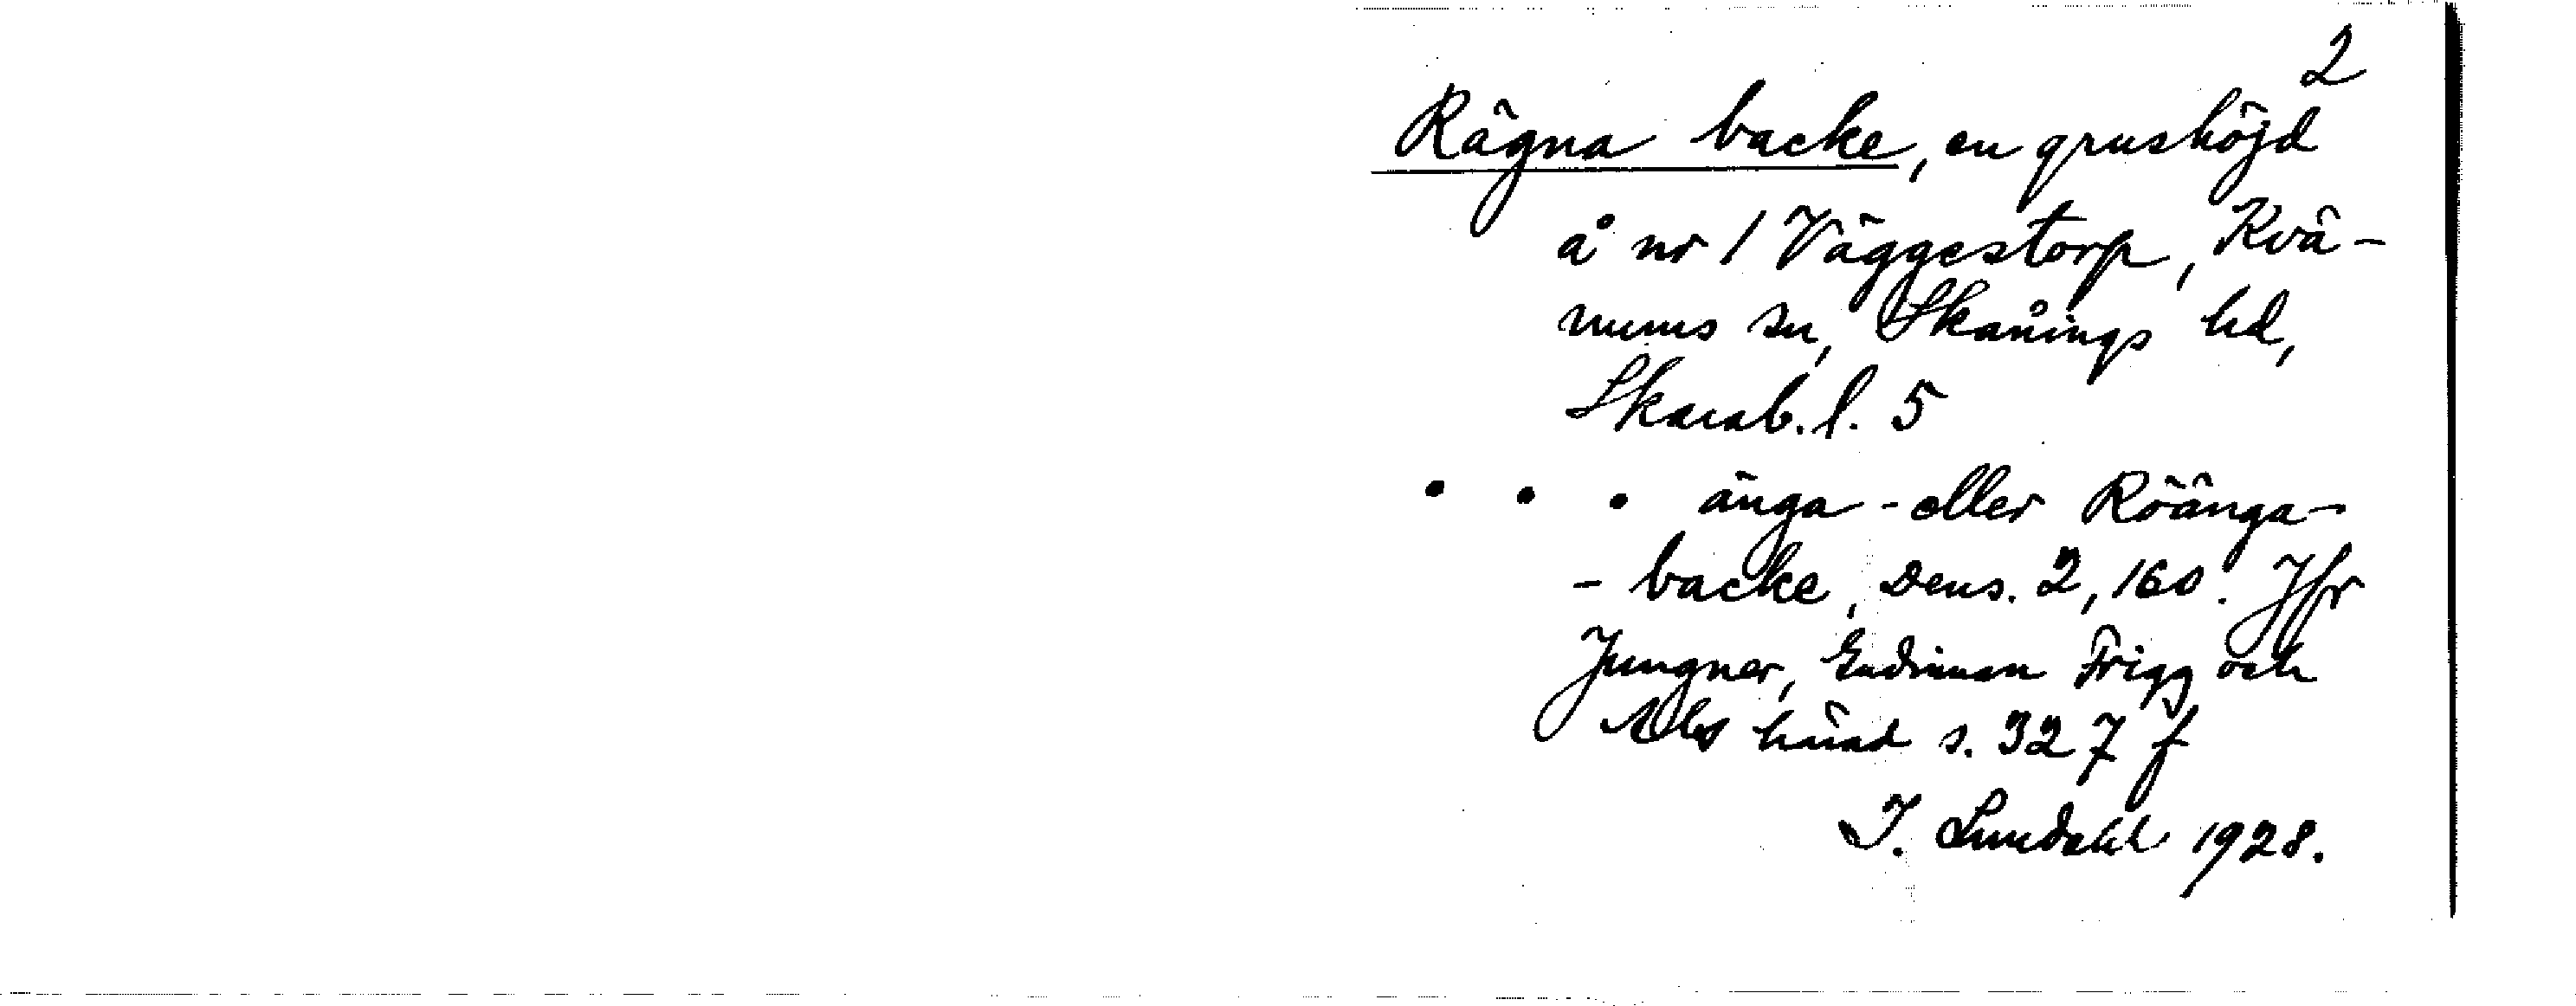 2
Rägna backe, en grushöjd
å nr 1 Väggestorp, Kvä-
nums sn, Skånings hd,
Skarab. l. 5
. . . änga - eller Röänga-
- backe, Dens. 2, 160. Jfr
Jungner, Gudinnan Frigg och
Als härad s. 327 f
I. Lundahl 1928.